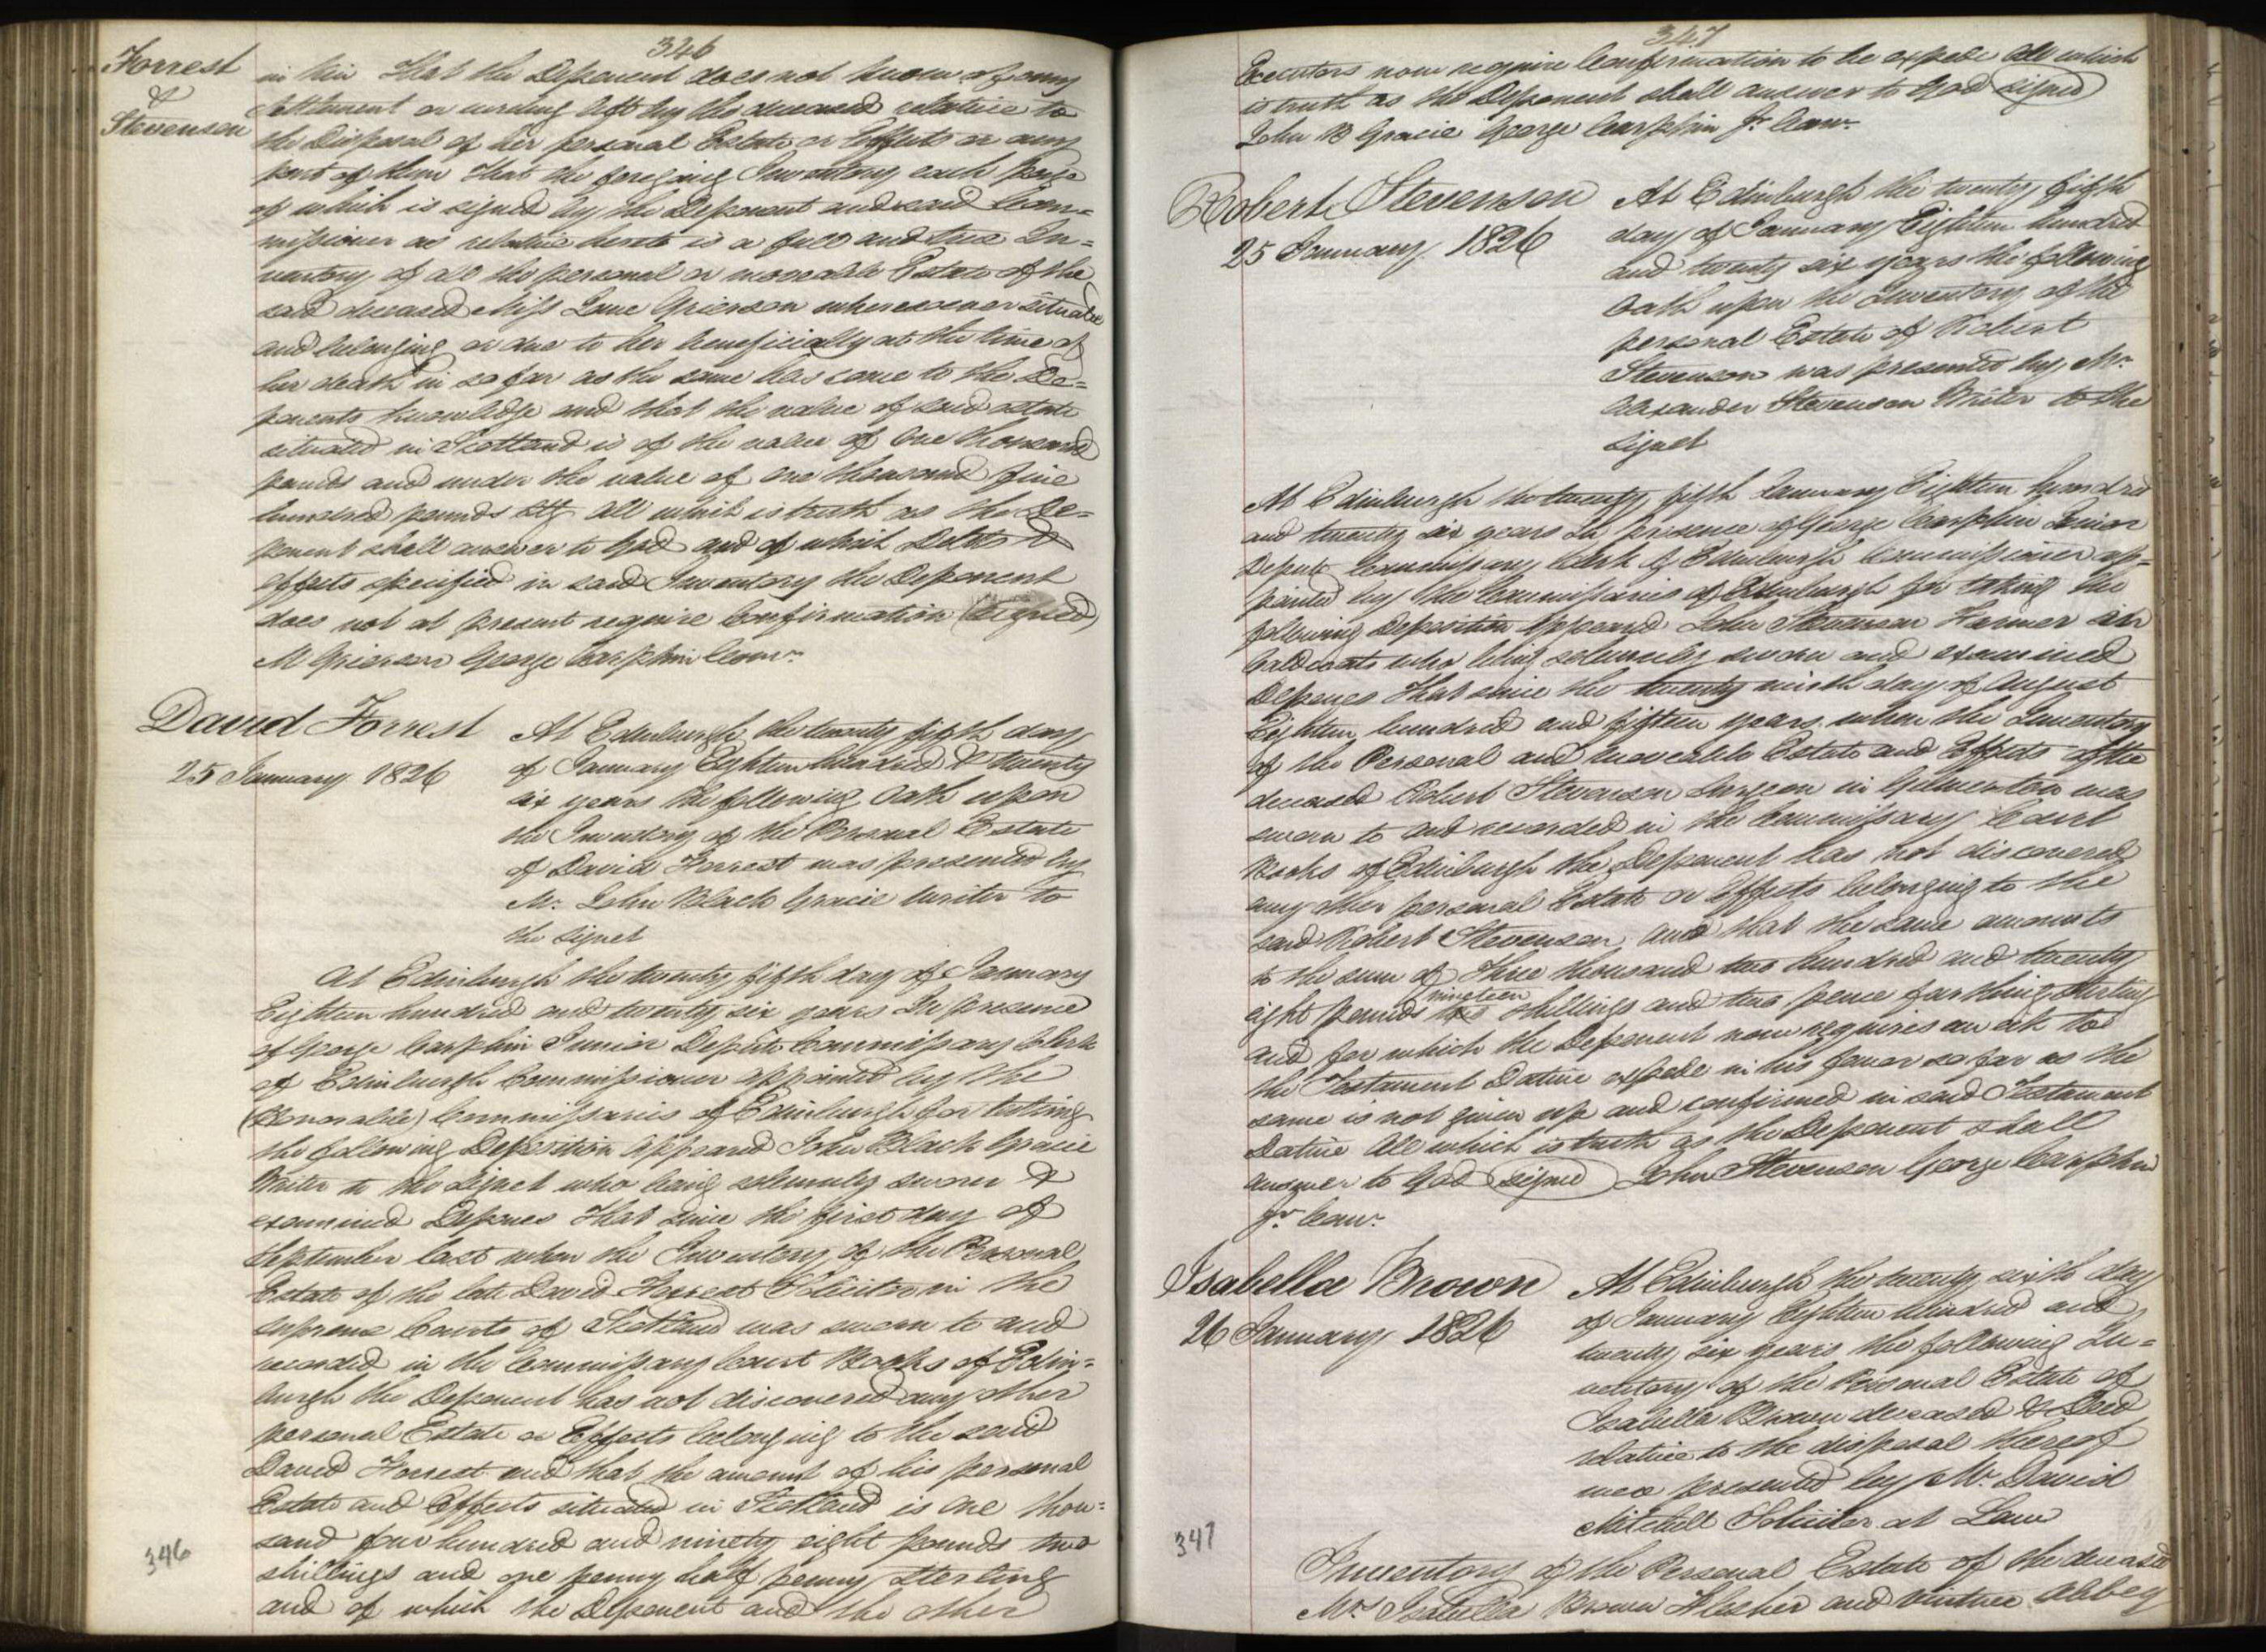 346
Forrest
&
Stevenson
in him That the Deponent does not know of any
Settlement or writing left by the deceased relative to
the Disposal of her personal Estate or Effects or any
part of them That the foregoing Inventory each page
of which is signed by the Deponent and said Com=
missioner as relative hereto is a full and true In=
ventory of all the personal or moveable Estate of the
said deceased Miss Jane Grierson wheresoever situated
and belonging or due to her beneficially at the time of
her death in so far as the same has come to the De=
ponents knowledge and that the value of said estate
situated in Scotland is of the value of One thousand
pounds and under the value of one thousand five
hundred pounds Stg All which is truth as the De=
ponent shall answer to God and of which Debts &
effects specified in said Inventory the Deponent
does not at present require Confirmation (Signed)
M Grierson George Carphin Comr.
David Forrest
25 January 1826
At Edinburgh the twenty fifth day
of January Eighteen hundred & twenty
six years the following Oath upon
the Inventory of the Personal Estate
of David Forrest was presented by
Mr. John Black Gracie Writer to
the Signet
At Edinburgh the twenty fifth day of January
Eighteen hundred and twenty six years In presence
of George Carphin Junior Depute Commissary Clerk
of Edinburgh Commissioner appointed by the
(Honorable) Commissaries of Edinburgh for taking
the following Deposition Appeared John Black Gracie
Writer to the Signet who being solemnly sworn &
examined Depones That since the first day of
September last when the Inventory of the Personal
Estate of the late David Forrest Solicitor in the
supreme Courts of Scotland was sworn to and
recorded in the Commissary Court Books of Edin=
burgh the Deponent has not discovered any other
personal Estate or Effects belonging to the said
David Forrest and that the amount of his personal
Estate and Effects situated in Scotland is One thou=
sand four hundred and ninety eight pounds two
shillings and one penny half penny Sterling
and of which the Deponent and the other
346
347
Executors now require Confirmation to be expede All which
is truth as the Deponent shall answer to God (signed)
John B Gracie George Carphin Jr. Comr.
Robert Stevenson
25 January 1826
At Edinburgh the twenty fifth
day of January Eighteen hundred
and twenty six years the following
Oath upon the Inventory of the
personal Estate of Robert
Stevenson was presented by Mr.
Alexander Stevenson Writer to the
Signet
At Edinburgh the twenty fifth January Eighteen hundred
and twenty six years In presence of George Carphin Junior
Depute Commissary Clerk of Edinburgh Commissioner ap=
pointed by the Commissaries of Edinburgh for taking the
following Deposition Appeared John Stevenson Farmer in
who being solemnly sworn and examined
Depones That since the twenty ninth day of August
Eighteen hundred and fifteen years when the Inventory
of the Personal and moveable Estate and Effects of the
deceased Robert Stevenson Surgeon in Gilmerton was
sworn to and recorded in the Commissary Court
Books of Edinburgh the Deponent has not discovered
any other personal Estate or Effects belonging to the
said Robert Stevenson and that the same amounts
to the sum of Three thousand two hundred and twenty
eight pounds nineteen shillings and two pence farthing Sterling
and for which the Deponent now requires an eik to
the Testament Dative expede in his favor so far as the
same is not given up and confirmed in said Testament
Dative All which is truth as the Deponent shall
answer to God (signed) John Stevenson George Carphin
Jr. Comr.
Isabella Brown
26 January 1826
At Edinburgh the twenty sixth day
of January Eighteen hundred and
twenty six years the following In=
ventory of the Personal Estate of
Isabella Brown deceased & Deed
relative to the disposal thereof
was presented by Mr. David
Mitchell Solicitor at Law
Inventory of the Personal Estate of the deceased
Mrs Isabella Brown Flesher and Vintner Abbey
347